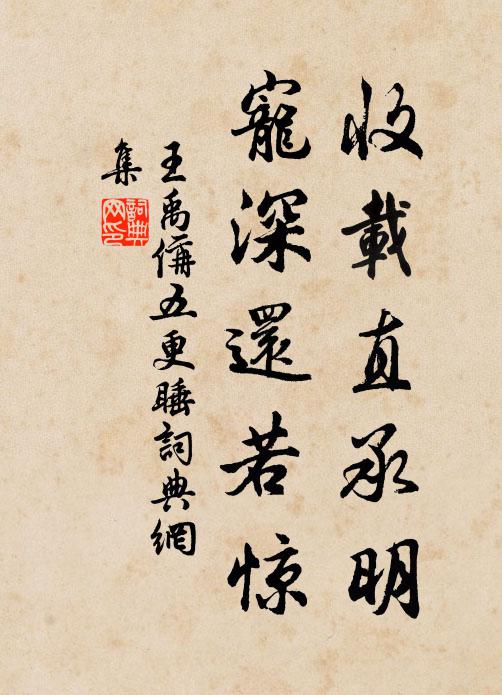 收載直承明
寵深還若惊
王禹偁五更睡詞典網
集
詞典网印